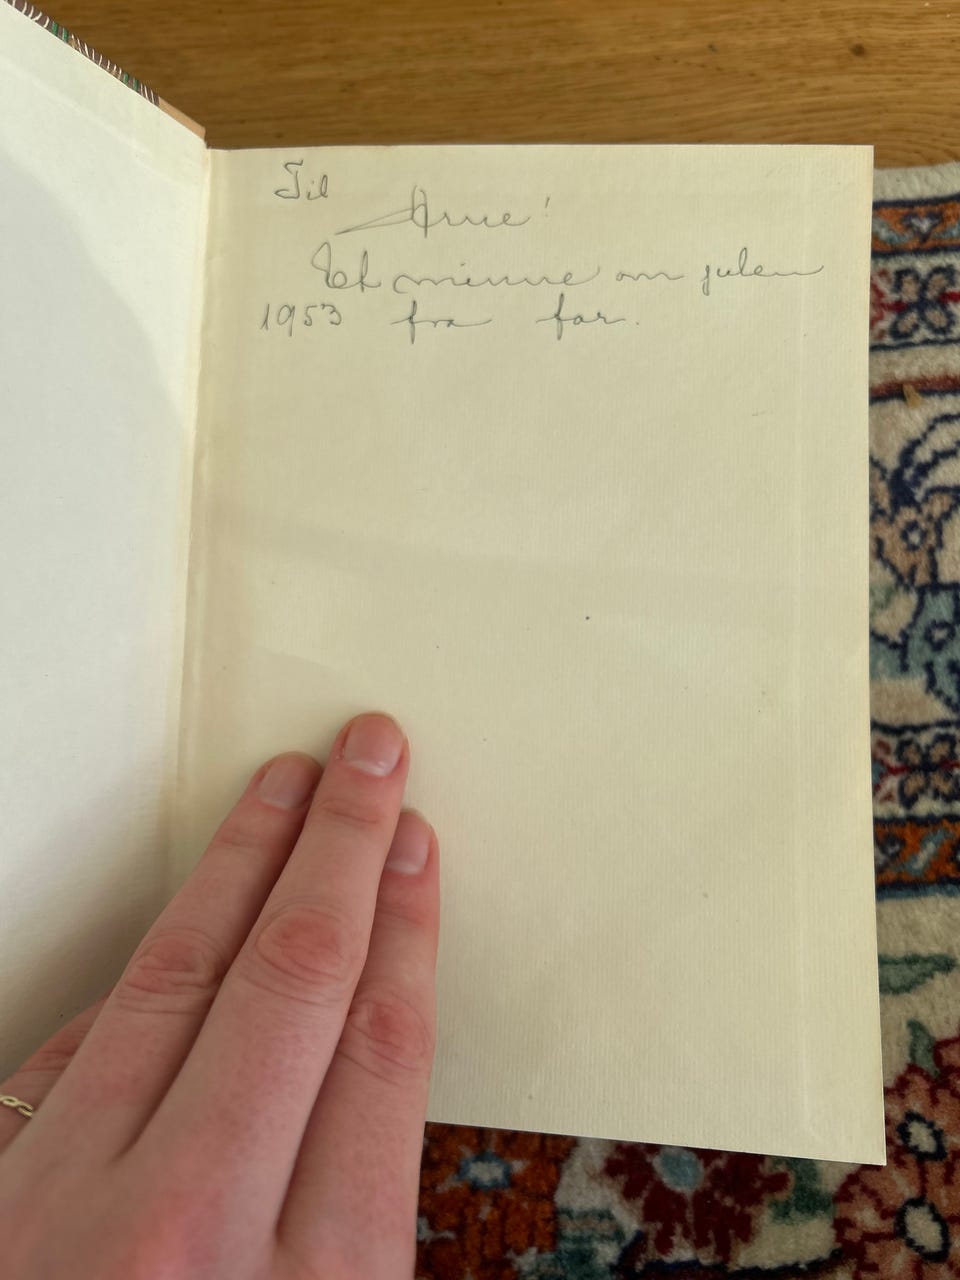 Til
Arne!
Et minne om julen
1953 fra far.